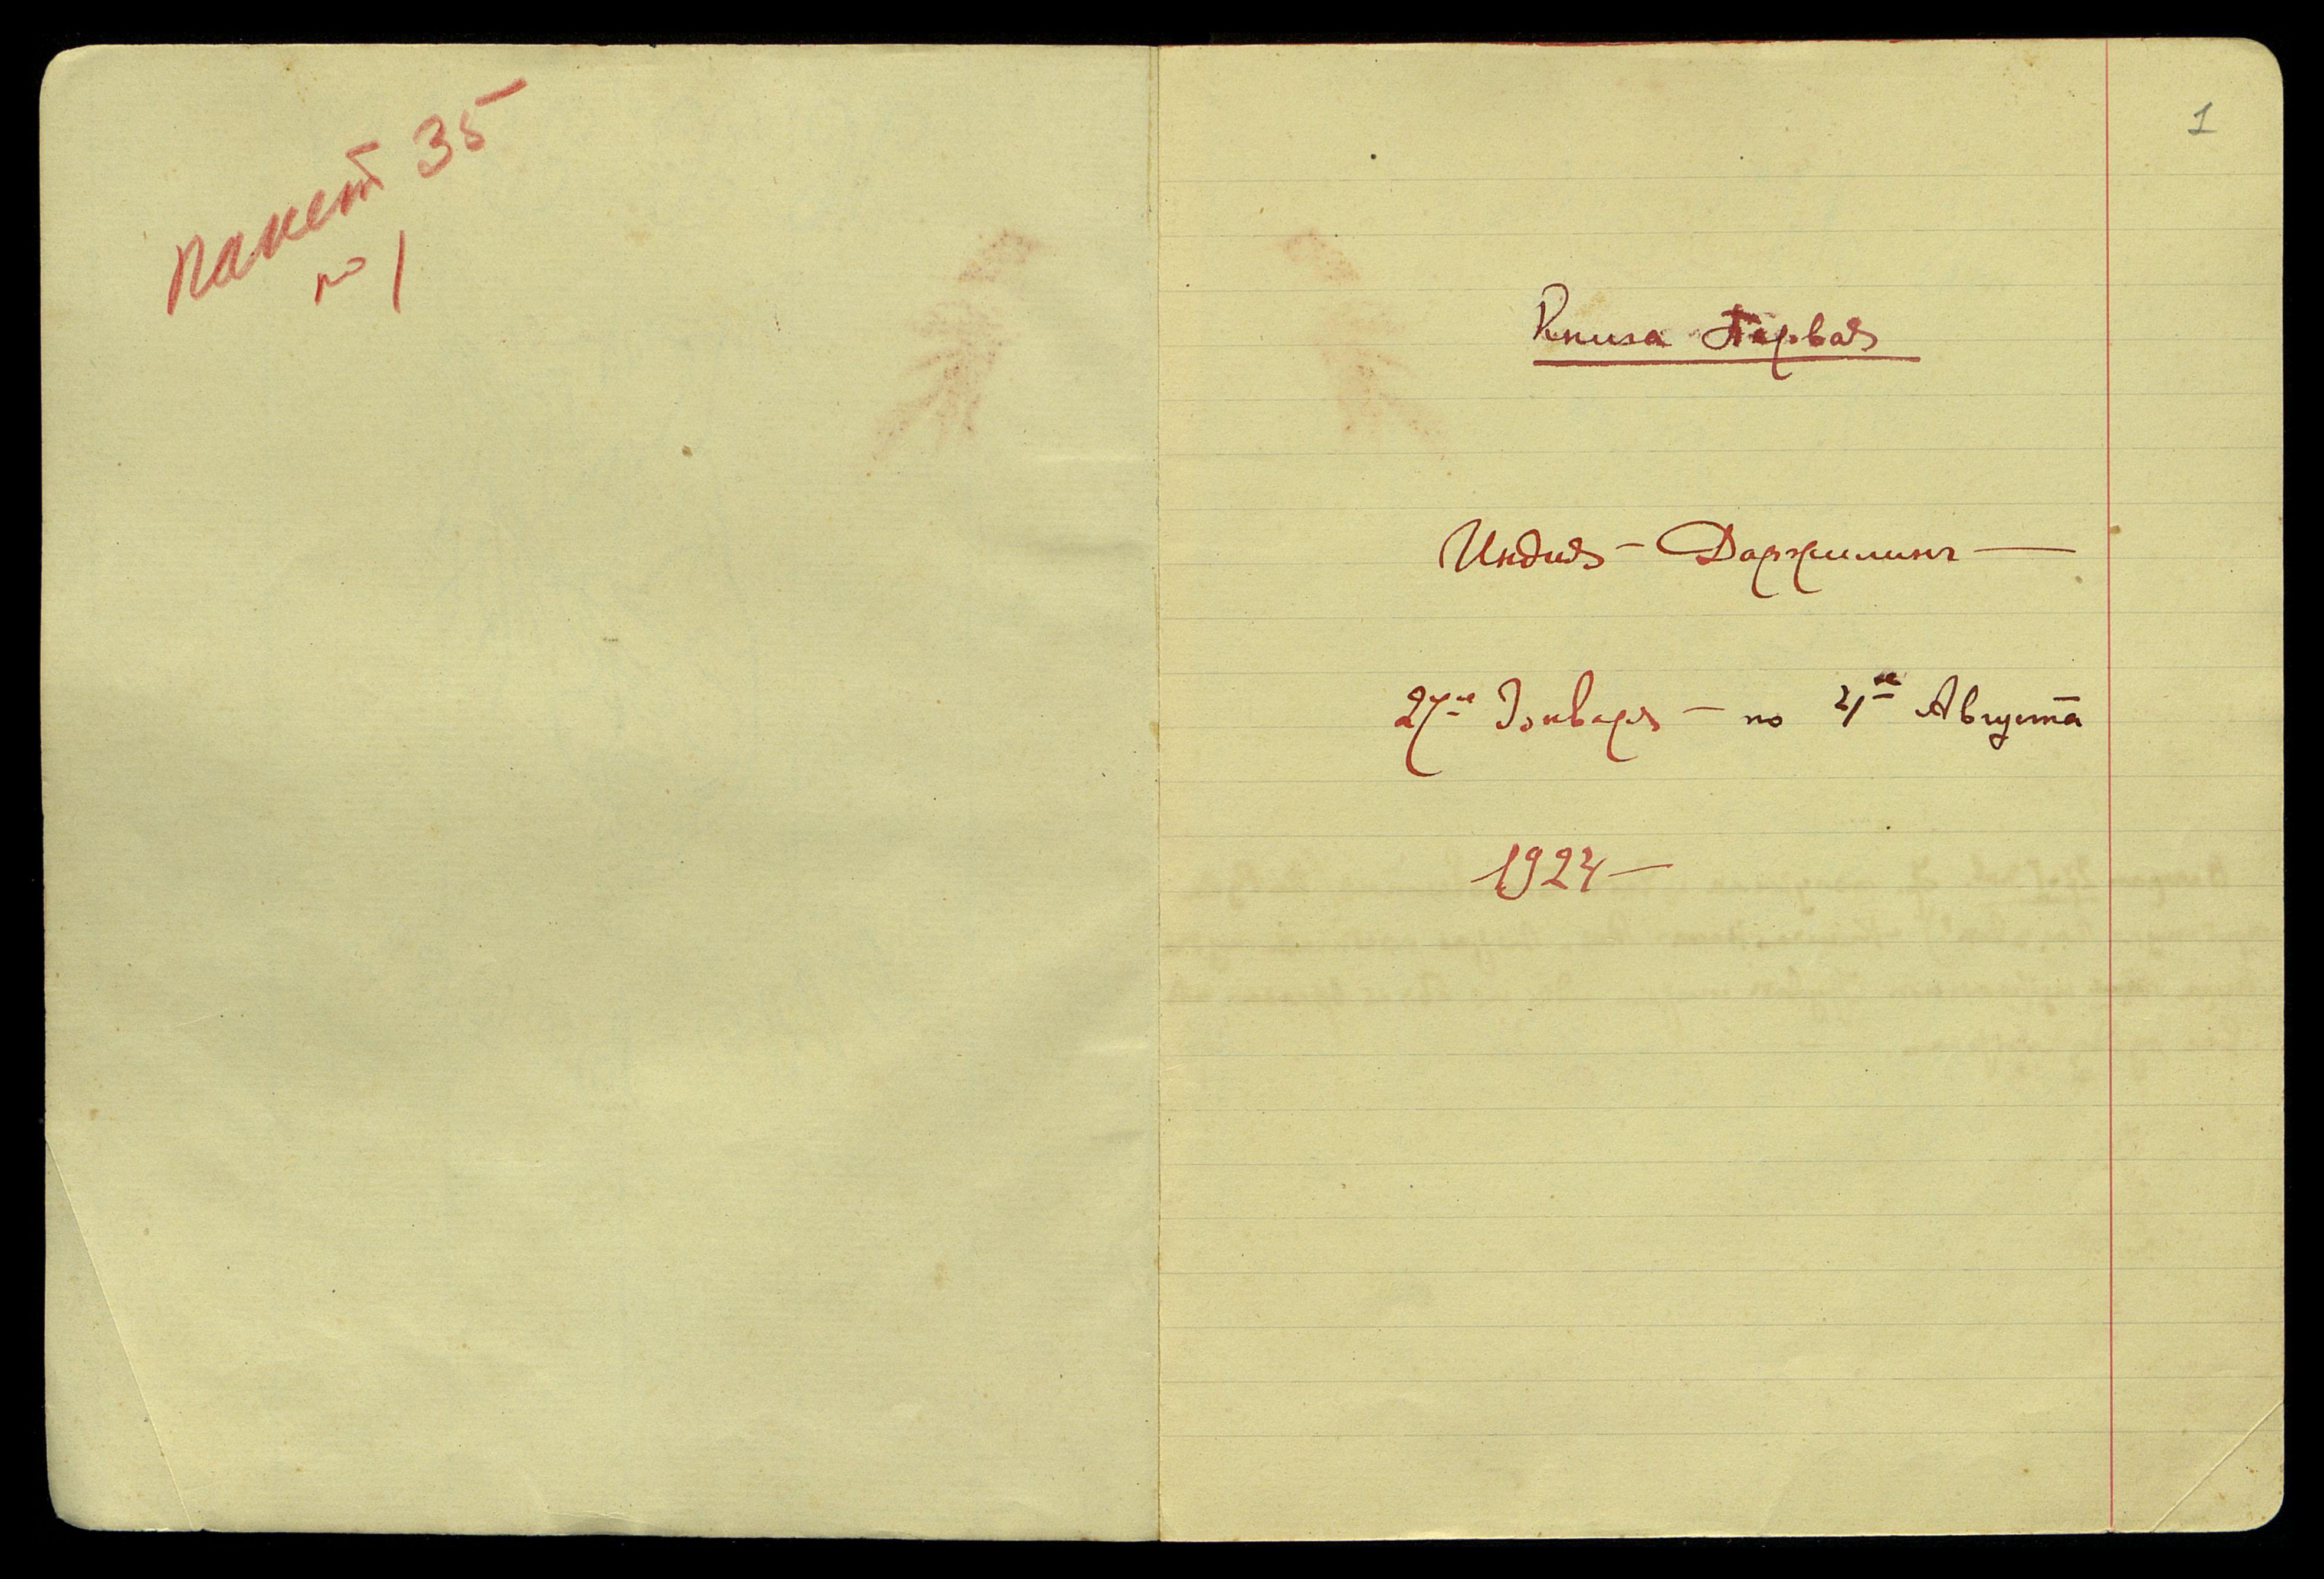 Пакет 35
№ 1
1
Книга Первая
Индия – Даржилинг —
27ое Января – по 21ое Августа
1924 —